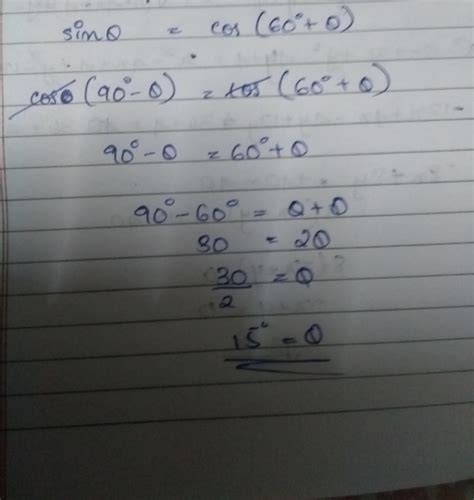 sinθ = cos (60° + θ)
cosθ (90° - θ) = cos (60° + θ)
90° - θ = 60° + θ
90° - 60° = θ + θ
30 = 2θ
30/2 = θ
15° = θ